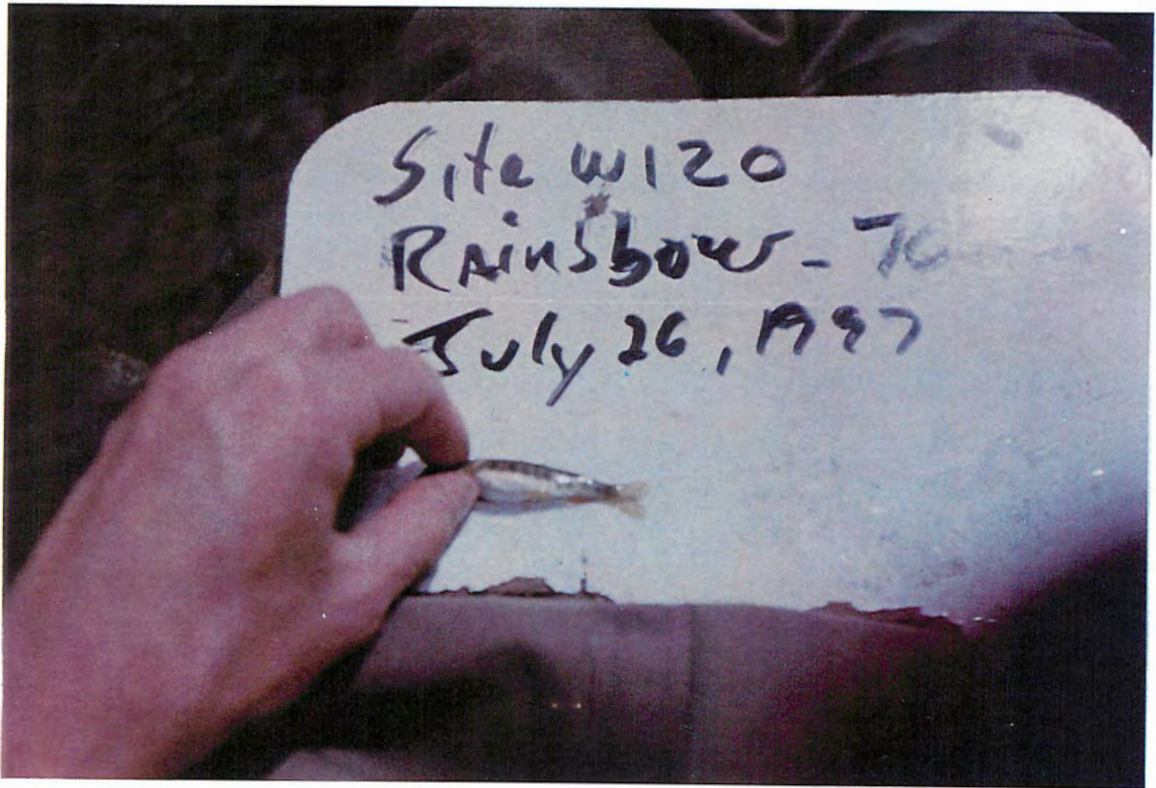 Site W120
Rainsbow -
July 26, 1997